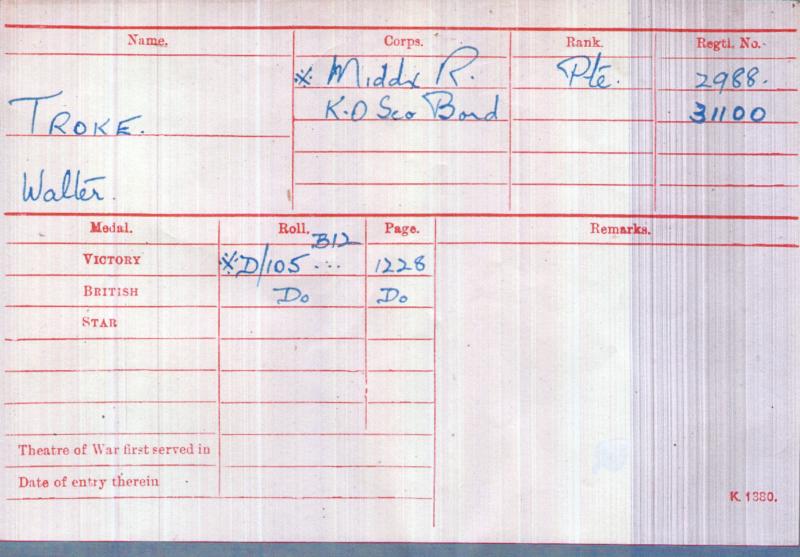 Name. Corps. Rank. Regtl. No.
※ Middx R. Pte. 2988.
TROKE. K.O Sco Bord 31100
Walter.
Medal. Roll. Page. Remarks.
B12
VICTORY ※D/105 ... 1228
BRITISH Do Do
STAR
Theatre of War first served in
Date of entry therein
K. 1380.